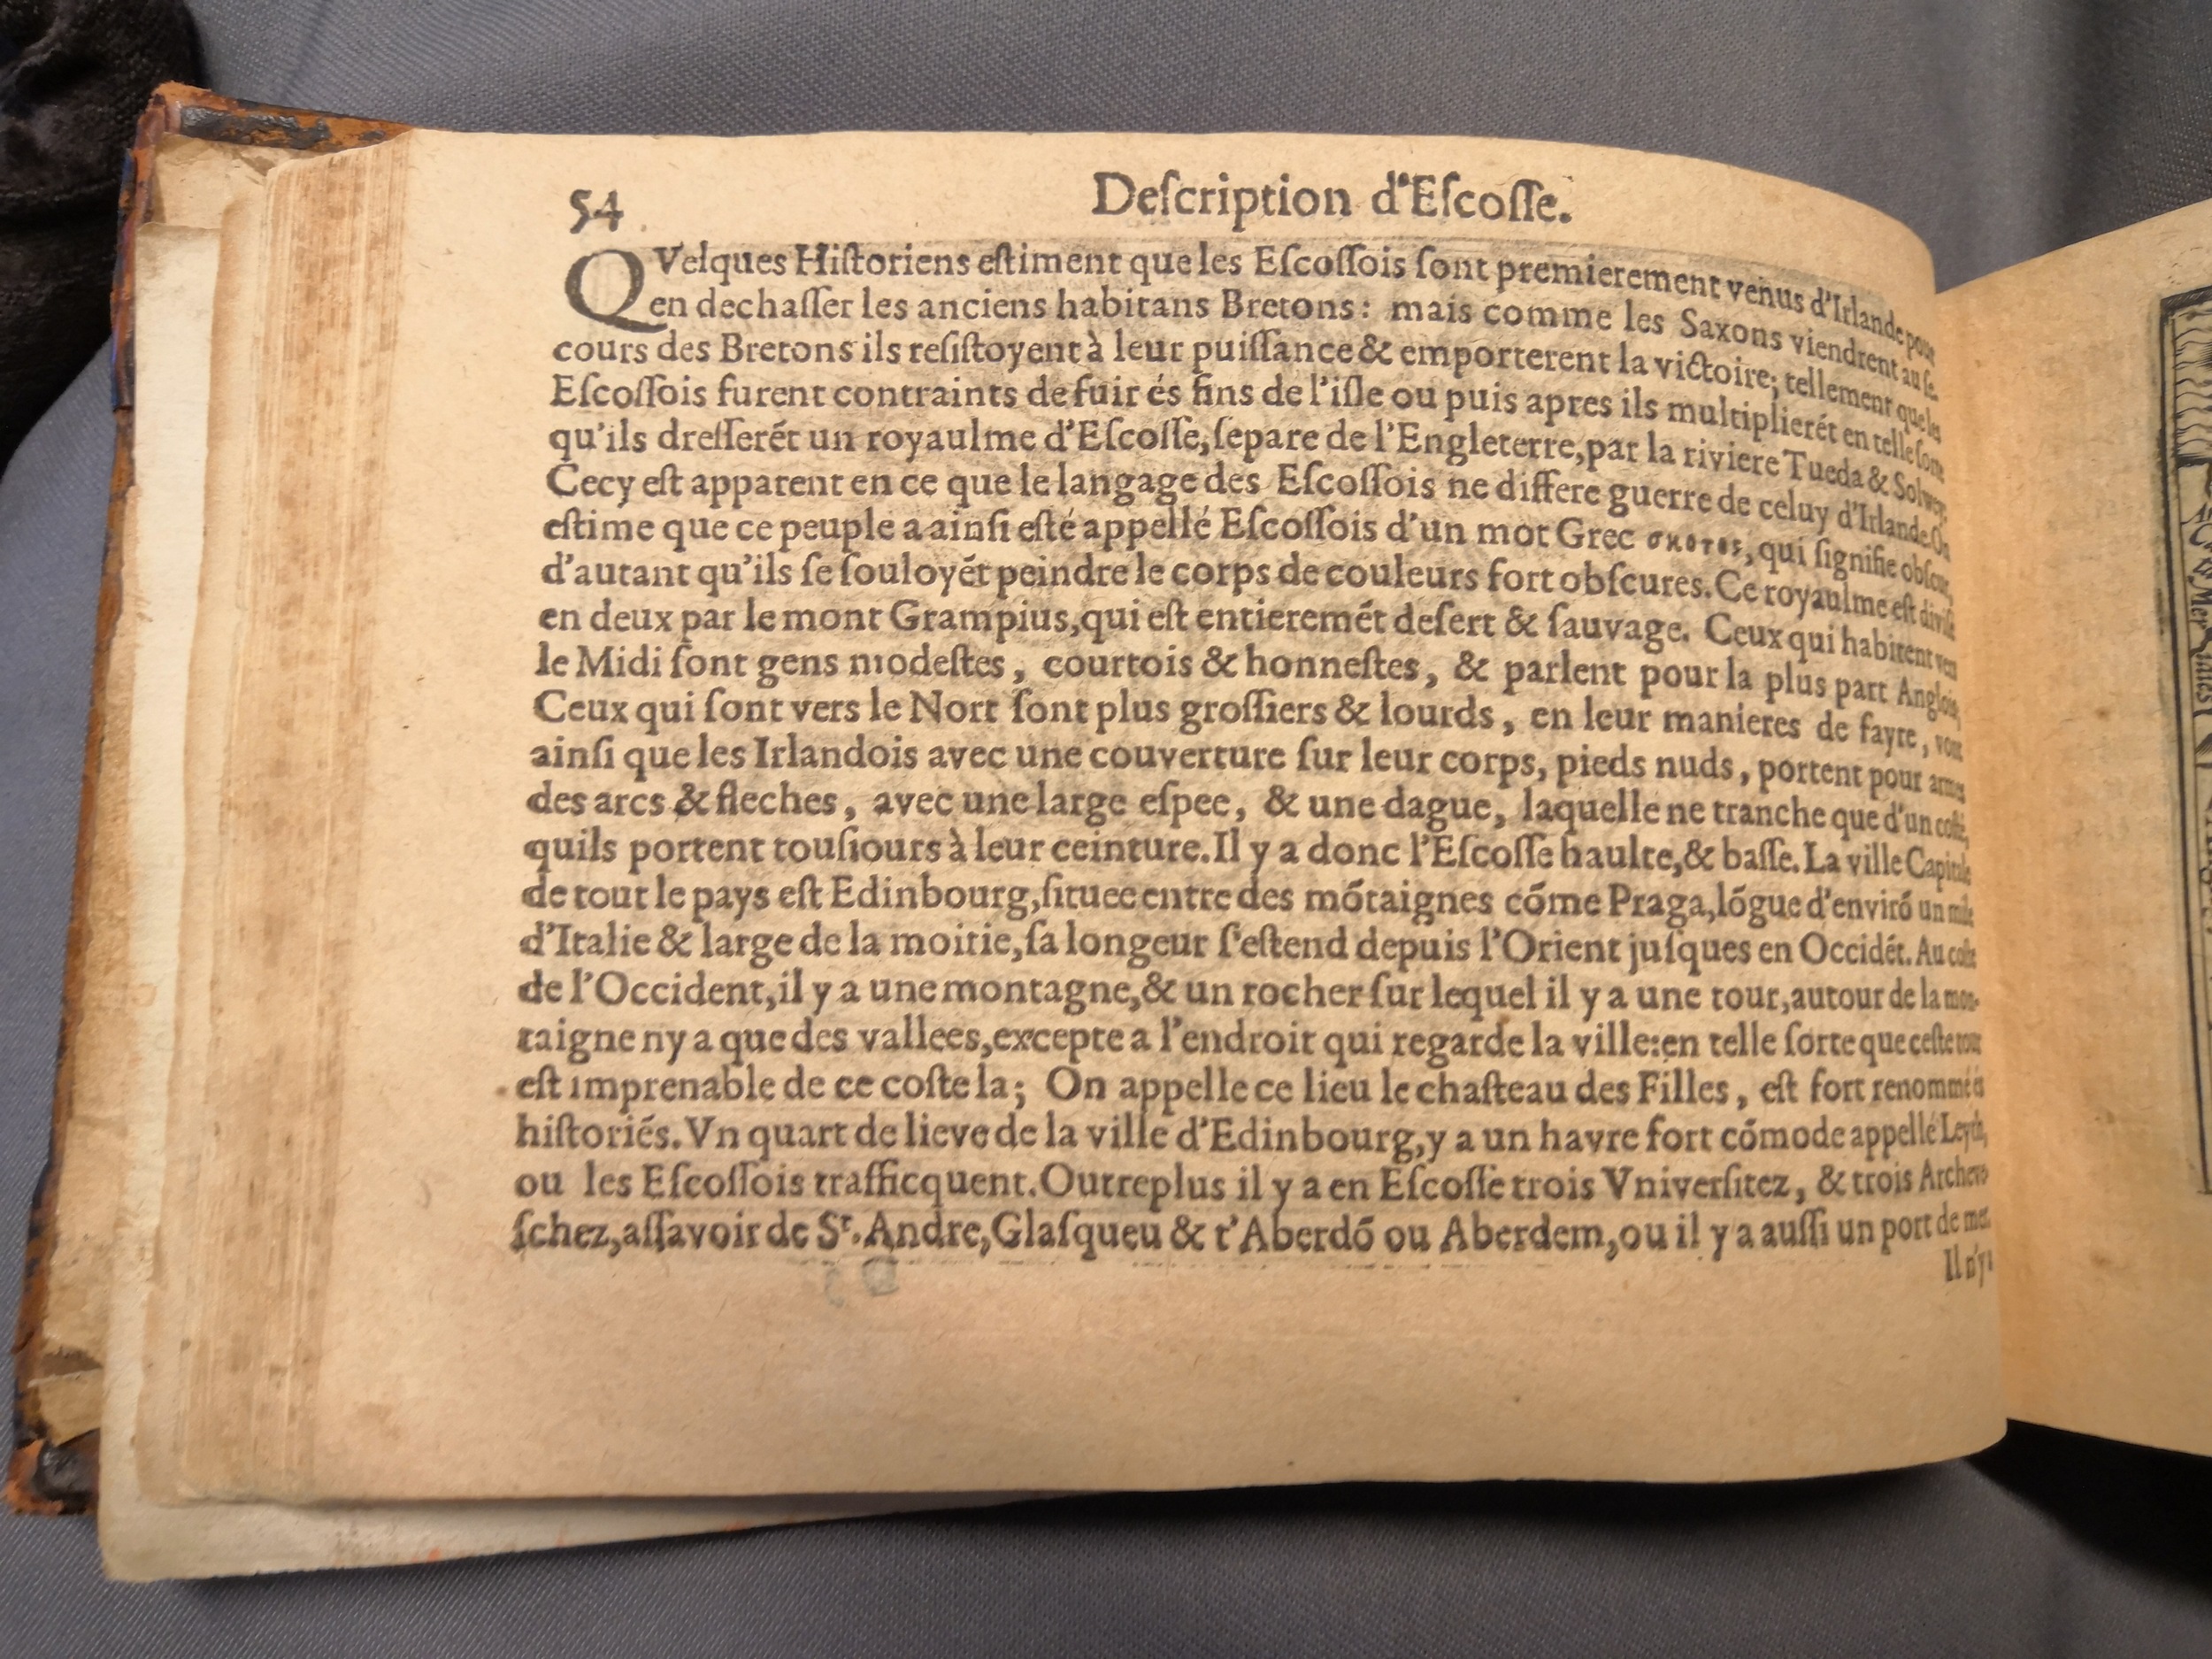 54
Deſcription d'Eſcoſſe.
QVelques Hiſtoriens eſtiment que les Eſcoſſois ſont premierement venus d'Irlande pour
en dechaſſer les anciens habitans Bretons: mais comme les Saxons viendrent au ſe-
cours des Bretons ils reſiſtoyent à leur puiſſance & emporterent la victoire; tellement que les
Eſcoſſois furent contraints de fuir és fins de l'iſle ou puis apres ils multiplierét en telle ſorte
qu'ils dreſſerét un royaulme d'Eſcoſſe, ſepare de l'Engleterre, par la riviere Tueda & Solwey.
Cecy eſt apparent en ce que le langage des Eſcoſſois ne differe guerre de celuy d'Irlande. On
eſtime que ce peuple a ainſi eſté appellé Eſcoſſois d'un mot Grec σκοτος, qui ſignifie obſcur,
d'autant qu'ils ſe ſouloyét peindre le corps de couleurs fort obſcures. Ce royaulme eſt diviſé
en deux par le mont Grampius, qui eſt entieremét deſert & ſauvage. Ceux qui habitent vers
le Midi ſont gens modeſtes, courtois & honneſtes, & parlent pour la plus part Anglois,
Ceux qui ſont vers le Nort ſont plus groſſiers & lourds, en leur manieres de fayre, vont
ainſi que les Irlandois avec une couverture ſur leur corps, pieds nuds, portent pour armes
des arcs & fleches, avec une large eſpee, & une dague, laquelle ne tranche que d'un coſté,
quils portent touſiours à leur ceinture. Il y a donc l'Eſcoſſe haulte, & baſſe. La ville Capitale
de tout le pays eſt Edinbourg, ſituee entre des mótaignes cóme Praga, lógue d'enviró un mile
d'Italie & large de la moitie, ſa longeur ſ'eſtend depuis l'Orient juſques en Occidét. Au coſte
de l'Occident, il y a une montagne, & un rocher ſur lequel il y a une tour, autour de la mon-
taigne ny a que des vallees, excepte a l'endroit qui regarde la ville: en telle ſorte que ceſte tour
eſt imprenable de ce coſte la; On appelle ce lieu le chaſteau des Filles, eſt fort renommé és
hiſtoriés. Vn quart de lieve de la ville d'Edinbourg, y a un havre fort cómode appellé Leyth,
ou les Eſcoſſois trafficquent. Outreplus il y a en Eſcoſſe trois Vniverſitez, & trois Archeve-
ſchez, aſſavoir de Sᵗ. Andre, Glaſqueu & t'Aberdó ou Aberdem, ou il y a auſſi un port de mer.
Il n'y a